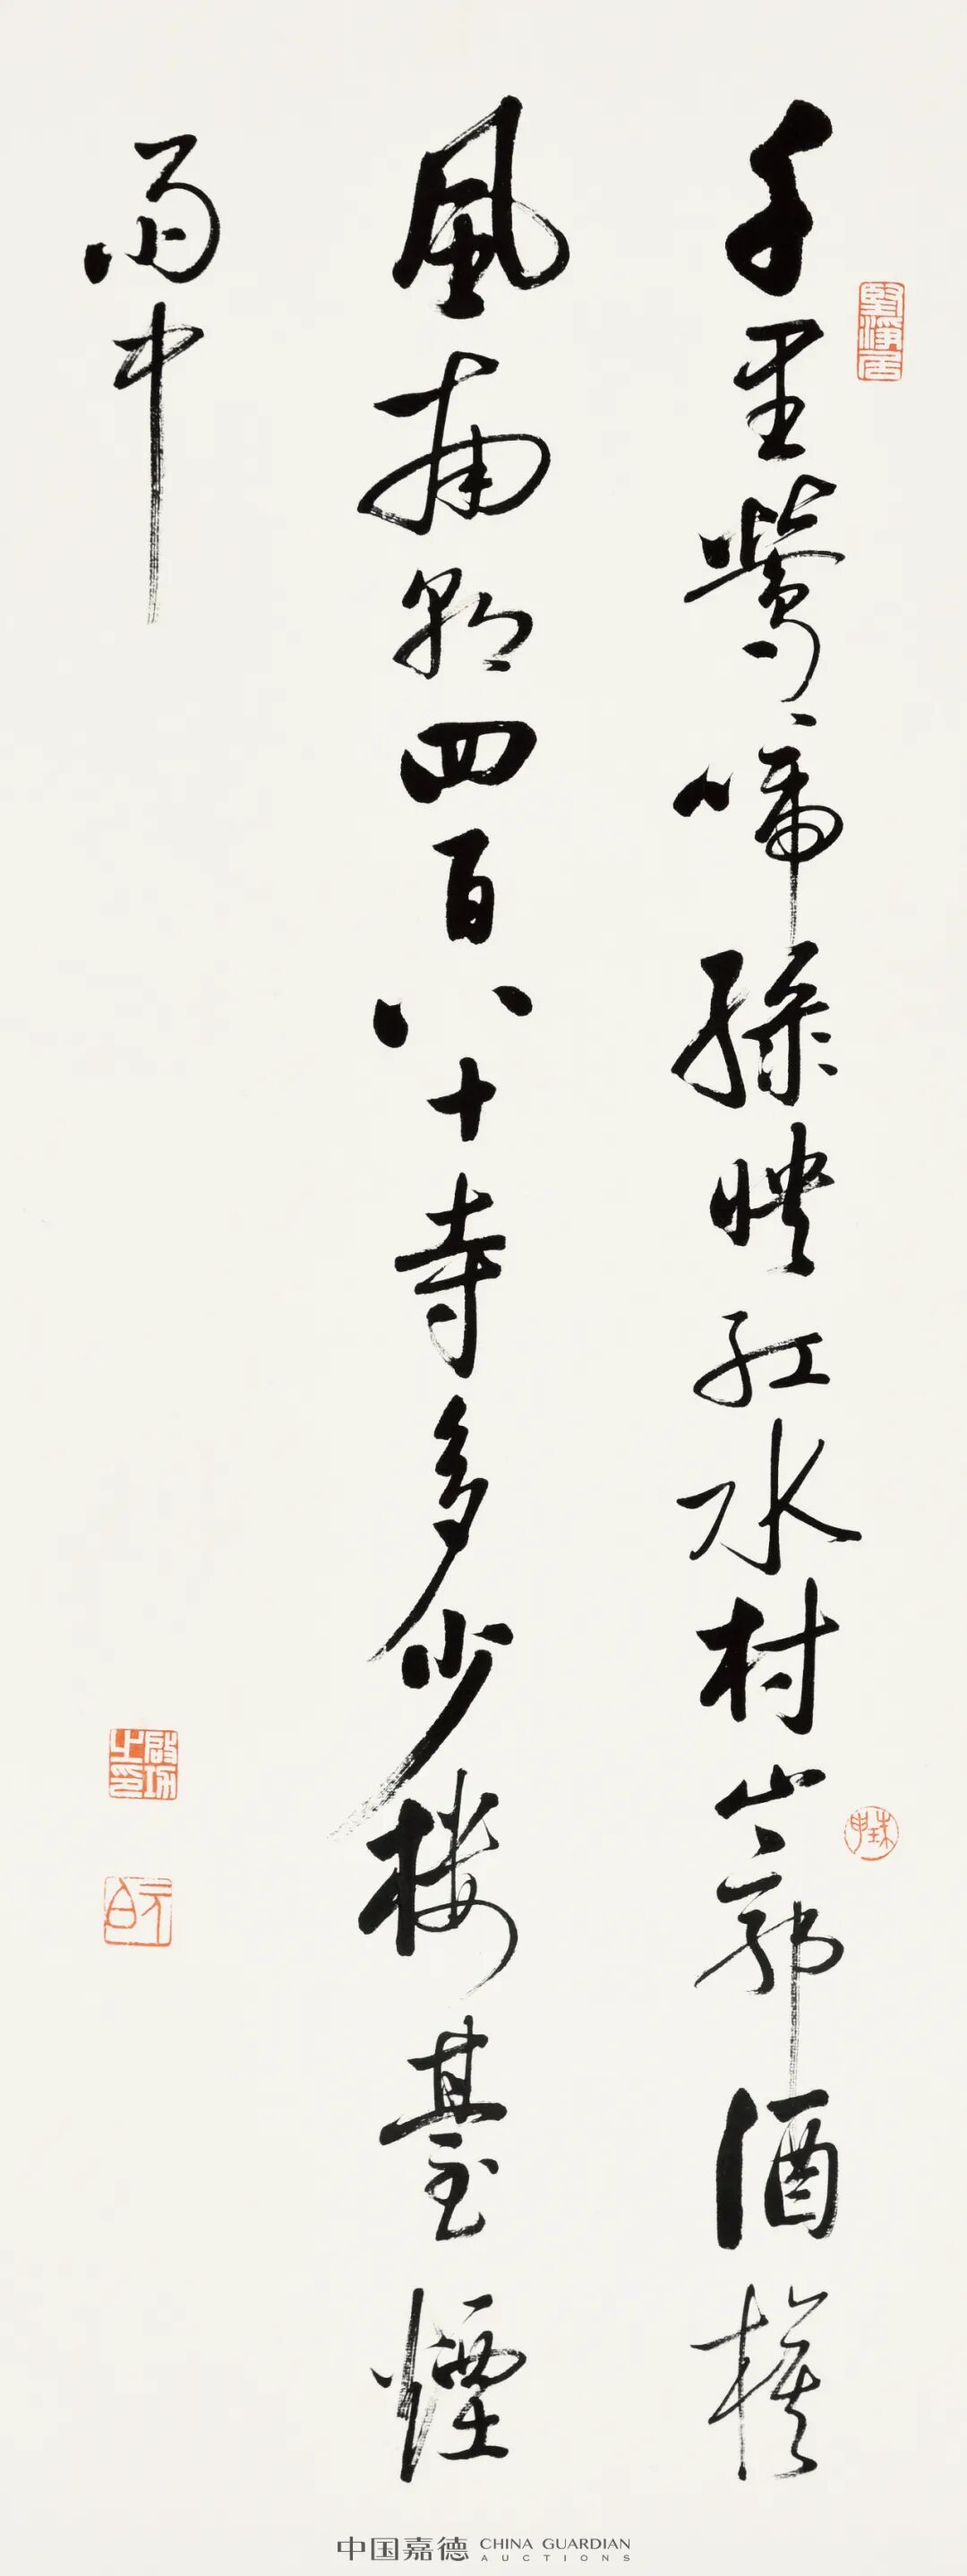 千里鶯啼緑映紅水村山郭酒旗
風南朝四百八十寺多少樓臺煙
雨中
堅淨居
珠申
啟功之印
元白
中国嘉德 CHINA GUARDIAN
AUCTIONS